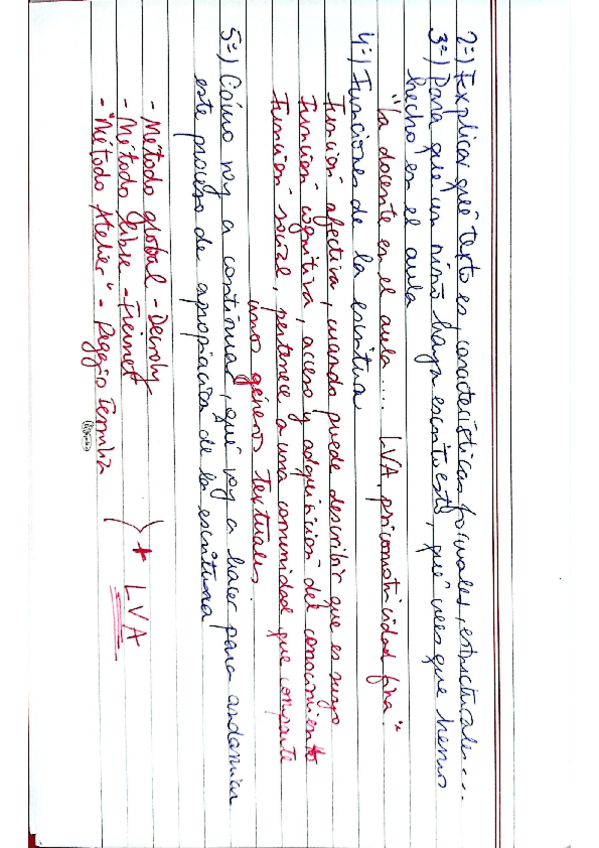 2º) Explicar qué texto es, características formales, estructurales....
3º) Para que un niño haya escrito esto, qué crees que hemos
hecho en el aula
"La docente en el aula..... LVA, psicomotricidad fina"
4º) Funciones de la escritura
Función afectiva, cuando puede describir que es suyo
Función cognitiva, acceso y adquisición del conocimiento
Función social, pertenece a una comunidad que comparte
unos géneros textuales
5º) Cómo voy a continuar, qué voy a hacer para andamiar
este proceso de apropiación de la escritura
- Método global - Decroly
- Método libre - Freinet
- "Método Atelier" - Reggio Emilia
+ LVA